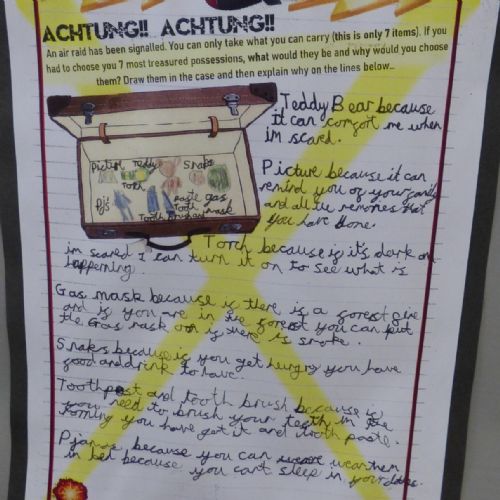 ACHTUNG!! ACHTUNG!!
An air raid has been signalled. You can only take what you can carry (this is only 7 items). If you
had to choose you 7 most treasured possessions, what would they be and why would you choose
them? Draw them in the case and then explain why on the lines below...
Teddy Bear because
it can comfort me when
im scared.
Picture because it can
remind you of your
and all memories that
you have done.
Picture Teddy Snaks
Torch
Pj's paste gas
Tooth mask
Tooth
Torch because if it's dark or
im scared I can turn it on to see what is
happening.
Gas mask because if there is a forest fire
and if you are in the forest you can put
the Gas mask on if there is smoke.
Snaks because if you get hungry you have
food and drink to have.
Toothpast and tooth brush because if
you need to brush your teeth in the
you have got it and tooth paste.
because you can wear them
in bet because you can't sleep in your